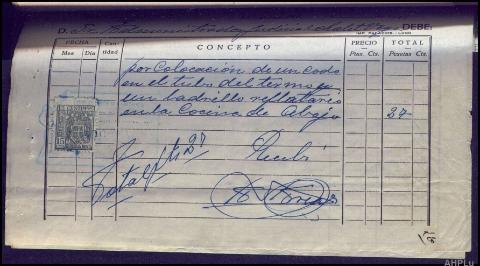 D. Sr. Administrador Judicial DEBE:
FECHA
Mes Dia
Can-
tidad
CONCEPTO
PRECIO
Ptas. Cts.
TOTAL
Pesetas Cts.
por Colocación de un codo
en el tubo del termo y
un ladrillo refractario
en la Cocina de Abajo 27-
Total Pts 27
Recibí
15
AHPLu